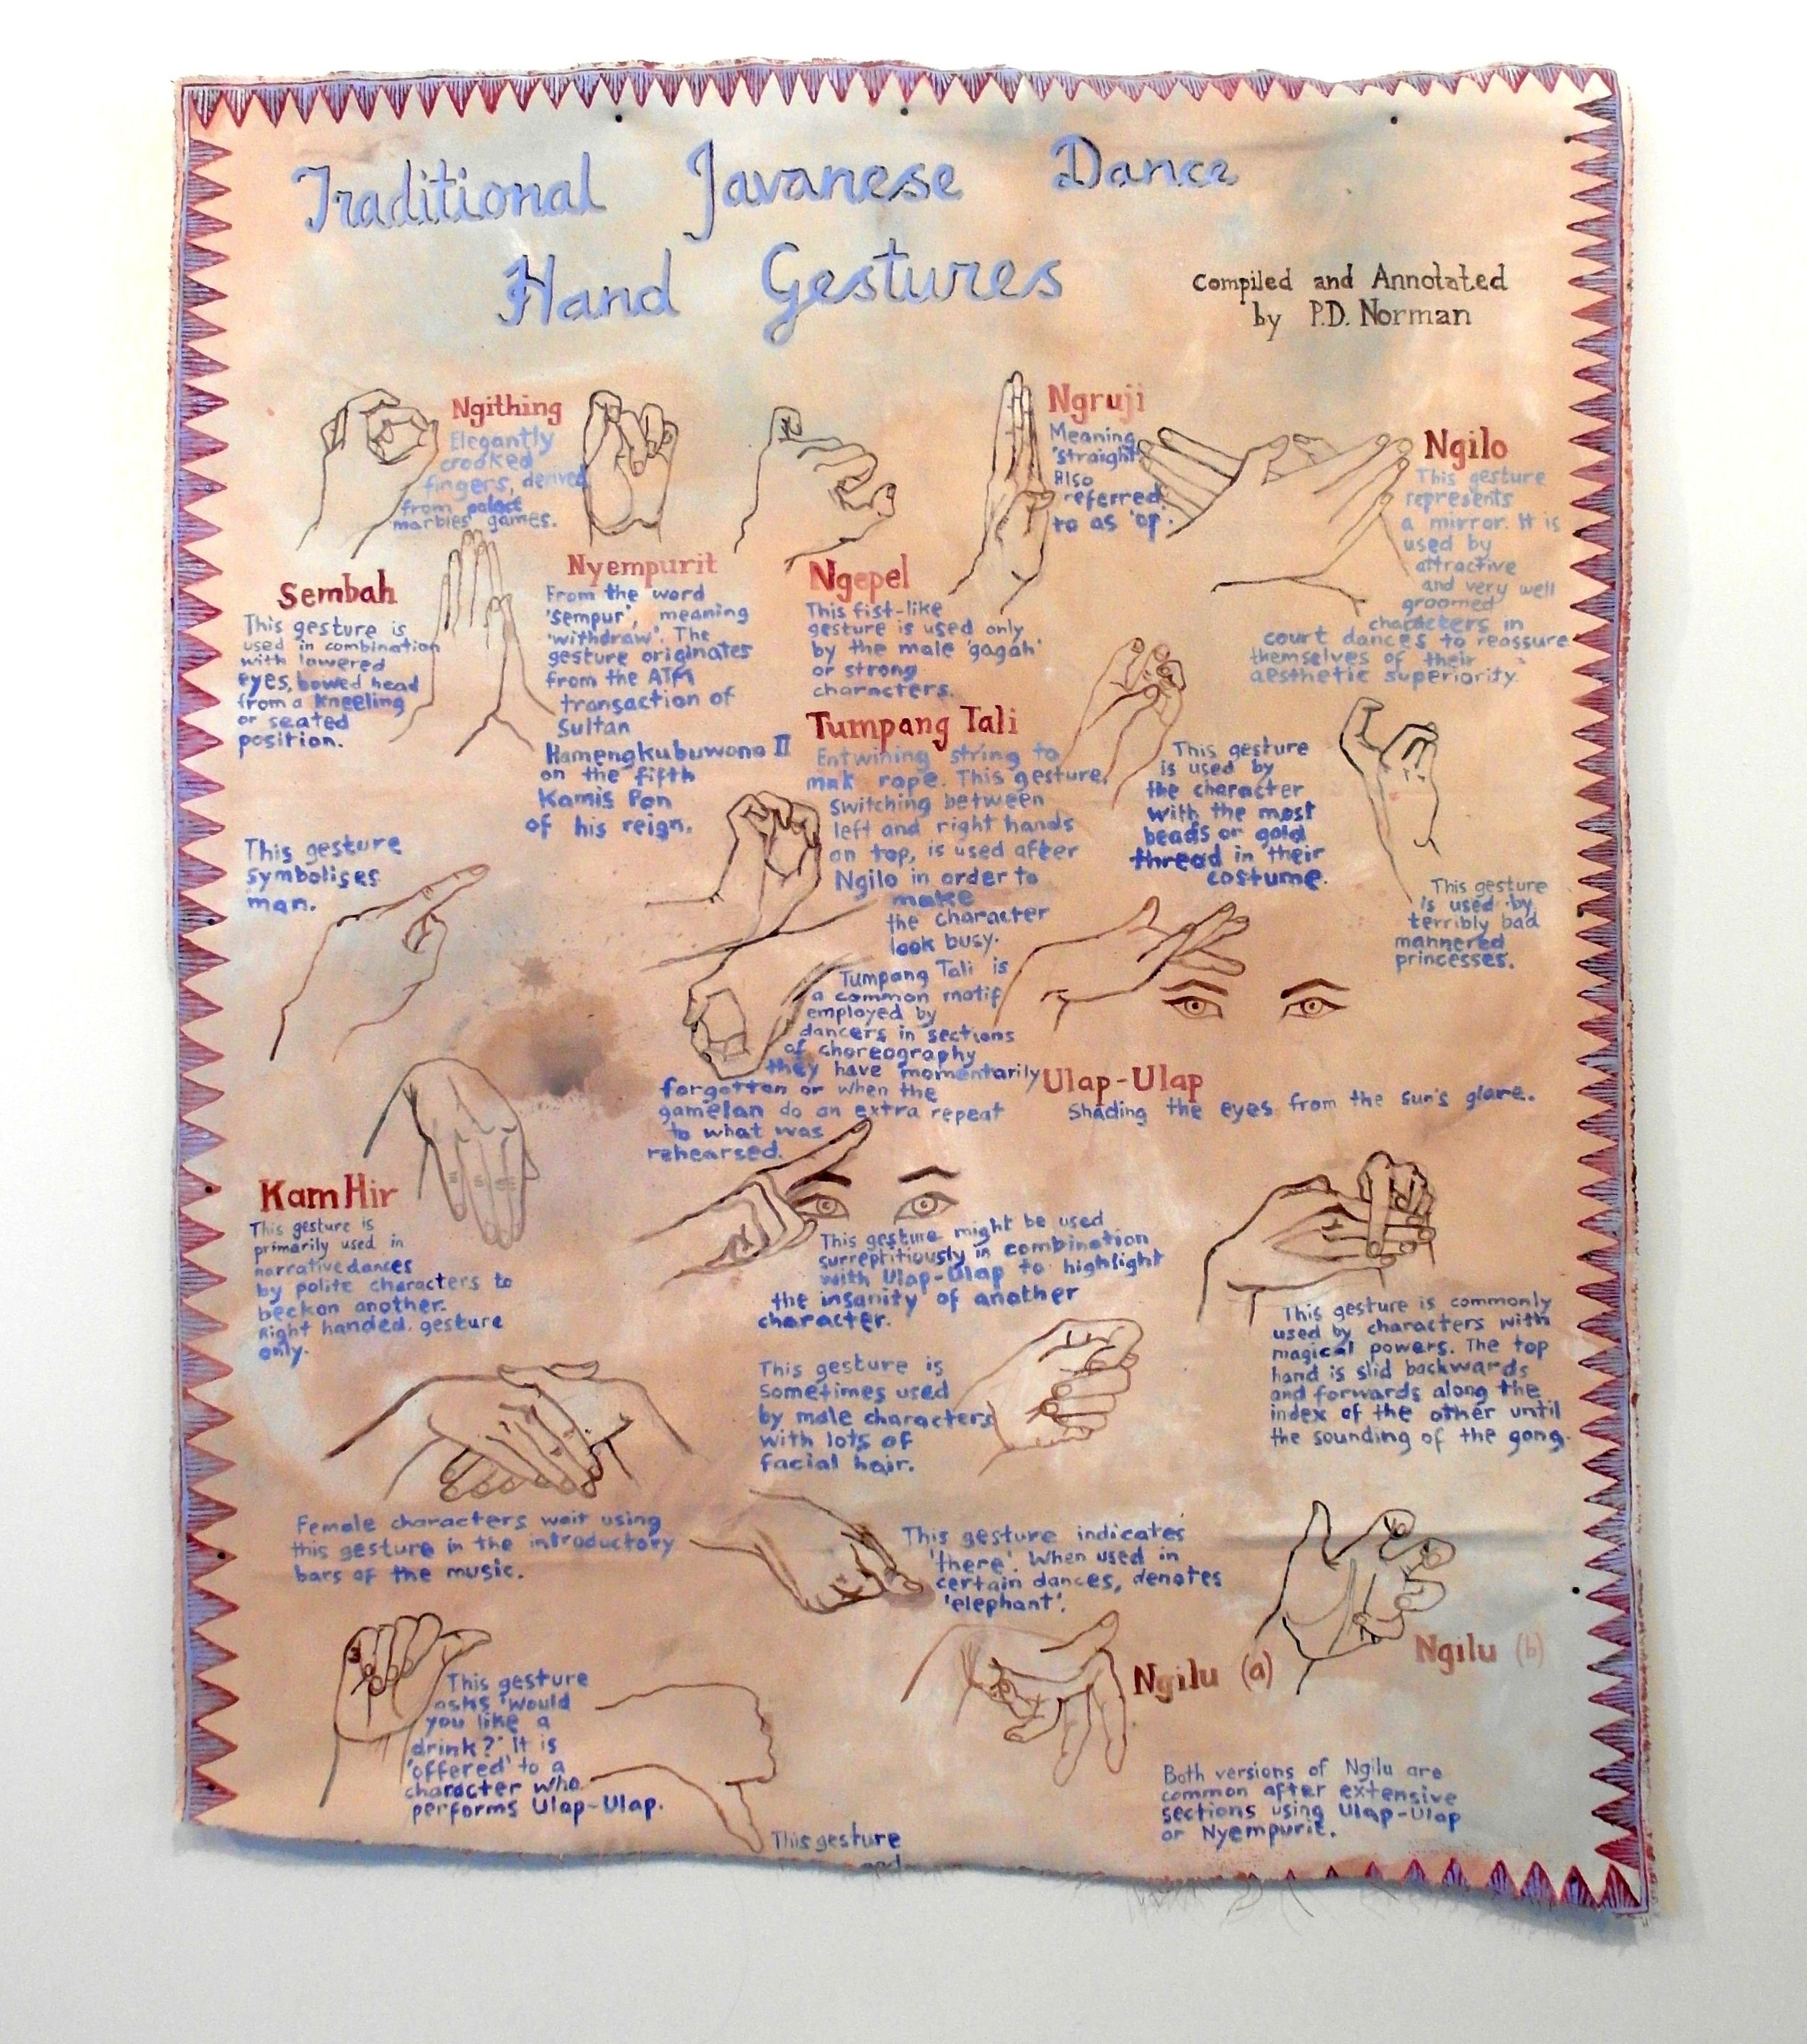 Traditional Javanese Dance
Hand Gestures
Compiled and Annotated
by P.D. Norman
Ngithing
Elegantly
crooked
fingers, derived
from palace
marbles games.
Ngruji
Meaning
'straight'.
Also
referred
to as 'of'.
Ngilo
This gesture
represents
a mirror. It is
used by
attractive
and very well
groomed
characters in
court dances to reassure
themselves of their
aesthetic superiority.
Sembah
This gesture is
used in combination
with lowered
eyes, bowed head
from a kneeling
or seated
position.
Nyempurit
From the word
'sempur', meaning
'withdraw'. The
gesture originates
from the ATM
transaction of
Sultan
Hamengkubuwono II
on the fifth
Kamis Pon
of his reign.
Ngepel
This fist-like
gesture is used only
by the male 'gagah'
or strong
characters.
Tumpang Tali
Entwining string to
mak rope. This gesture,
switching between
left and right hands
on top, is used after
Ngilo in order to
make
the character
look busy.
Tumpang Tali is
a common motif
employed by
dancers in sections
of choreography
they have momentarily
forgotten or when the
gamelan do an extra repeat
to what was
rehearsed.
This gesture
is used by
the character
with the most
beads or gold
thread in their
costume.
This gesture
is used by
terribly bad
mannered
princesses.
This gesture
symbolises
man.
Ulap-Ulap
Shading the eyes from the sun's glare.
Kam Hir
This gesture is
primarily used in
narrative dances
by polite characters to
beckon another.
Right handed gesture
only.
This gesture might be used
surreptitiously in combination
with Ulap-Ulap to highlight
the insanity of another
character.
This gesture is commonly
used by characters with
magical powers. The top
hand is slid backwards
and forwards along the
index of the other until
the sounding of the gong.
This gesture is
sometimes used
by male characters
with lots of
facial hair.
Female characters wait using
this gesture in the introductory
bars of the music.
This gesture indicates
'there'. When used in
certain dances, denotes
'elephant'.
Ngilu (a)
Ngilu (b)
This gesture
asks 'Would
you like a
drink?' It is
'offered' to a
character who
performs Ulap-Ulap.
Both versions of Ngilu are
common after extensive
sections using Ulap-Ulap
or Nyempurit.
This gesture